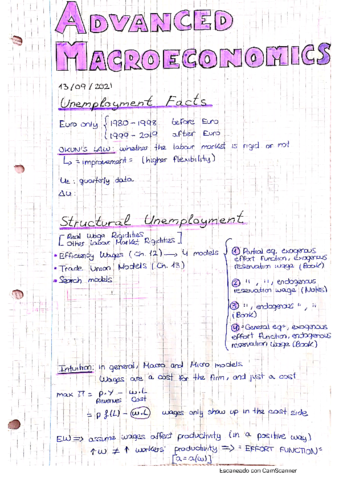 ADVANCED
MACROECONOMICS
13/09/2021
Unemployment Facts
Euro only { 1980-1998 before Euro
1999-2019 after Euro
OKUN'S LAW: whether the labour market is rigid or not
↳ = improvement = (higher flexibility)
Ut: quarterly data
Δu:
Structural Unemployment
[ Real Wage Rigidities
Other Labour Market Rigidities ]
• Efficiency Wages (Ch. 12) → 4 models
• Trade Union Models (Ch. 13)
• Search models
① Partial eq, exogenous
effort function, exogenous
reservation wage (Book)
② ", ", endogenous
reservation wage (Notes)
③ ", endogenous ", "
(Book)
④ "General eq", exogenous
effort function, endogenous
reservation wage (Book)
Intuition: in general, Macro and Micro models
Wages are a cost for the firm, and just a cost
max Π = p·Y - w·L
Revenues Cost
= p f(L) - w·L wages only show up in the cost side
EW => assume wages affect productivity (in a positive way)
↑w ≠ ↑ workers' productivity => "EFFORT FUNCTION"
[a = a(w)]
Escaneado con CamScanner